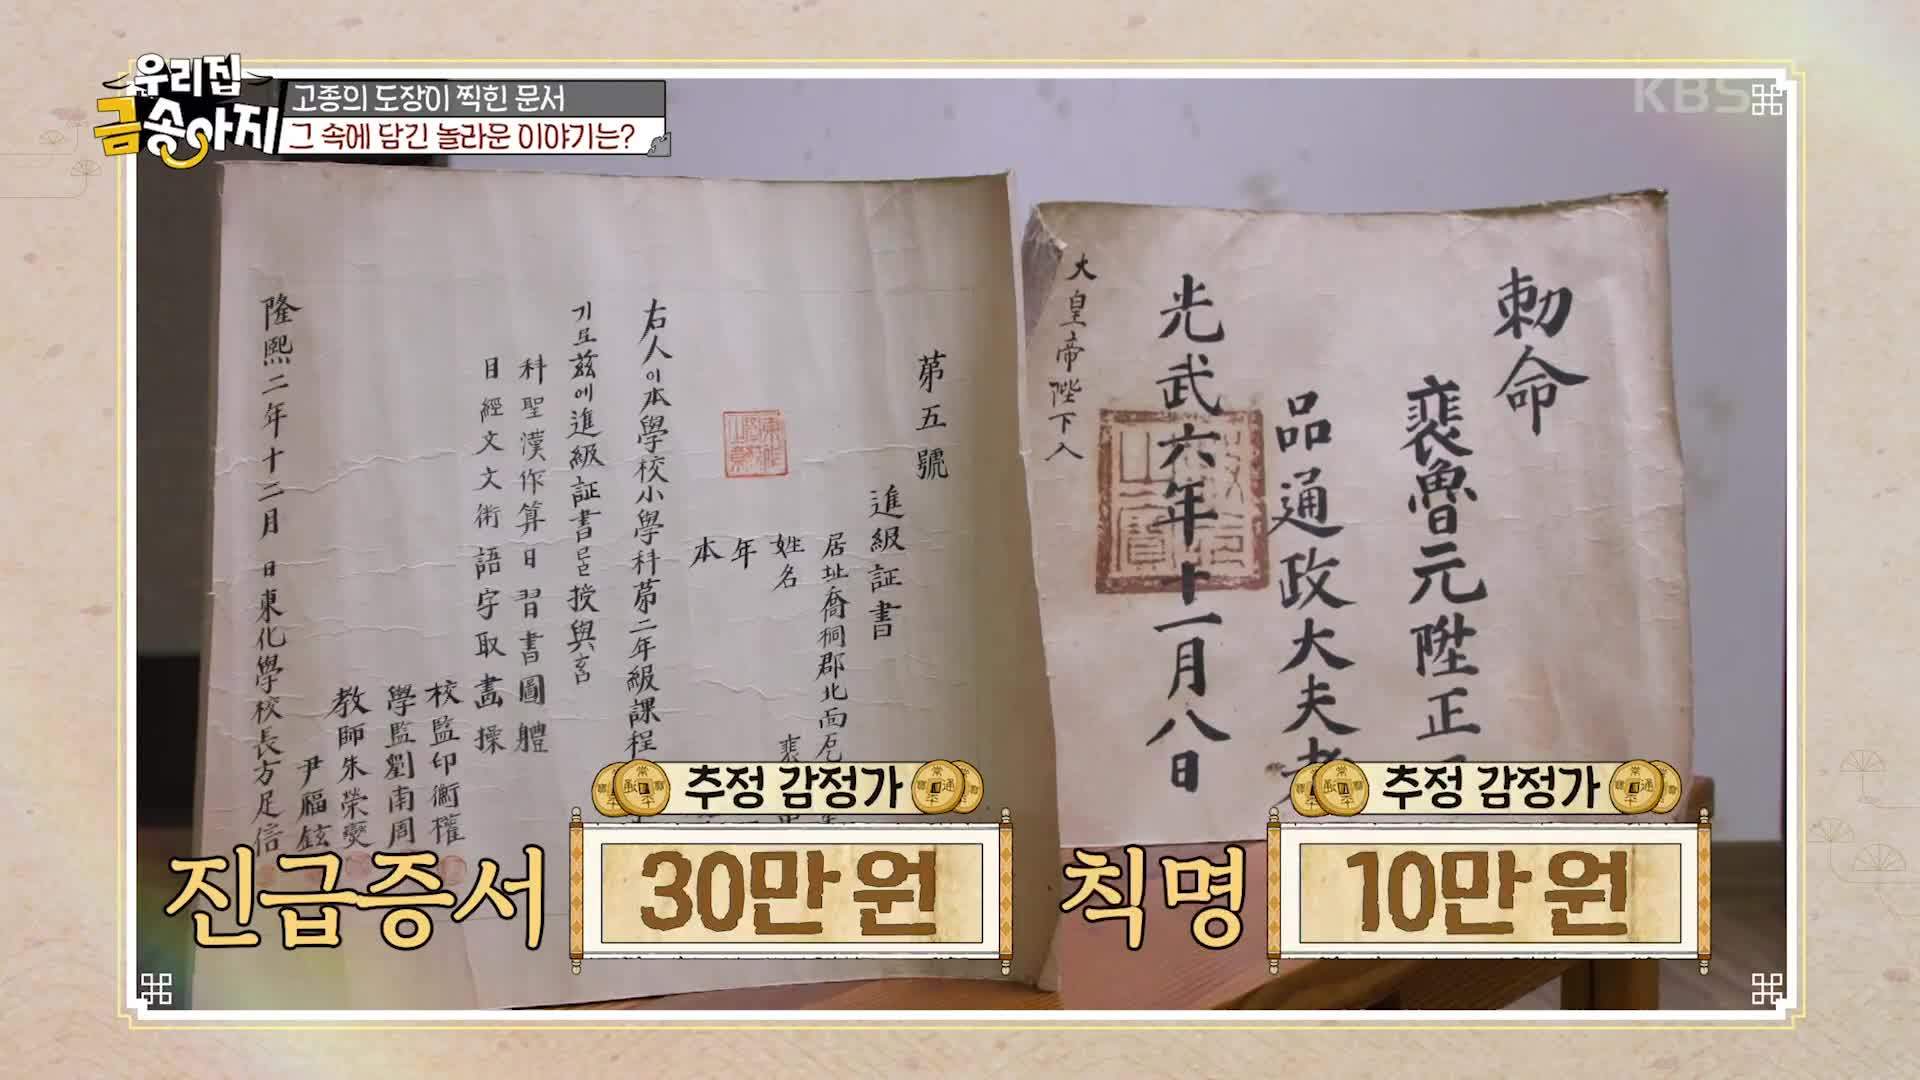 우리집
금송아지
고종의 도장이 찍힌 문서
그 속에 담긴 놀라운 이야기는?
KBS
第五號
進級証書
居址喬桐郡北面
姓名 裵
年
本
右人이本學校小學科第二年級課程
기로玆에進級証書를授與홈
科聖漢作算日習書圖體
目經文文術語字取畵操
校監印衡權
學監劉南周
教師朱榮爕
尹福鉉
隆熙二年十二月 日東化學校長方足信
勅命
裵魯元陞正
品通政大夫者
光武六年十一月八日
大皇帝陛下入
추정 감정가
진급증서
30만 원
추정 감정가
칙명
10만 원